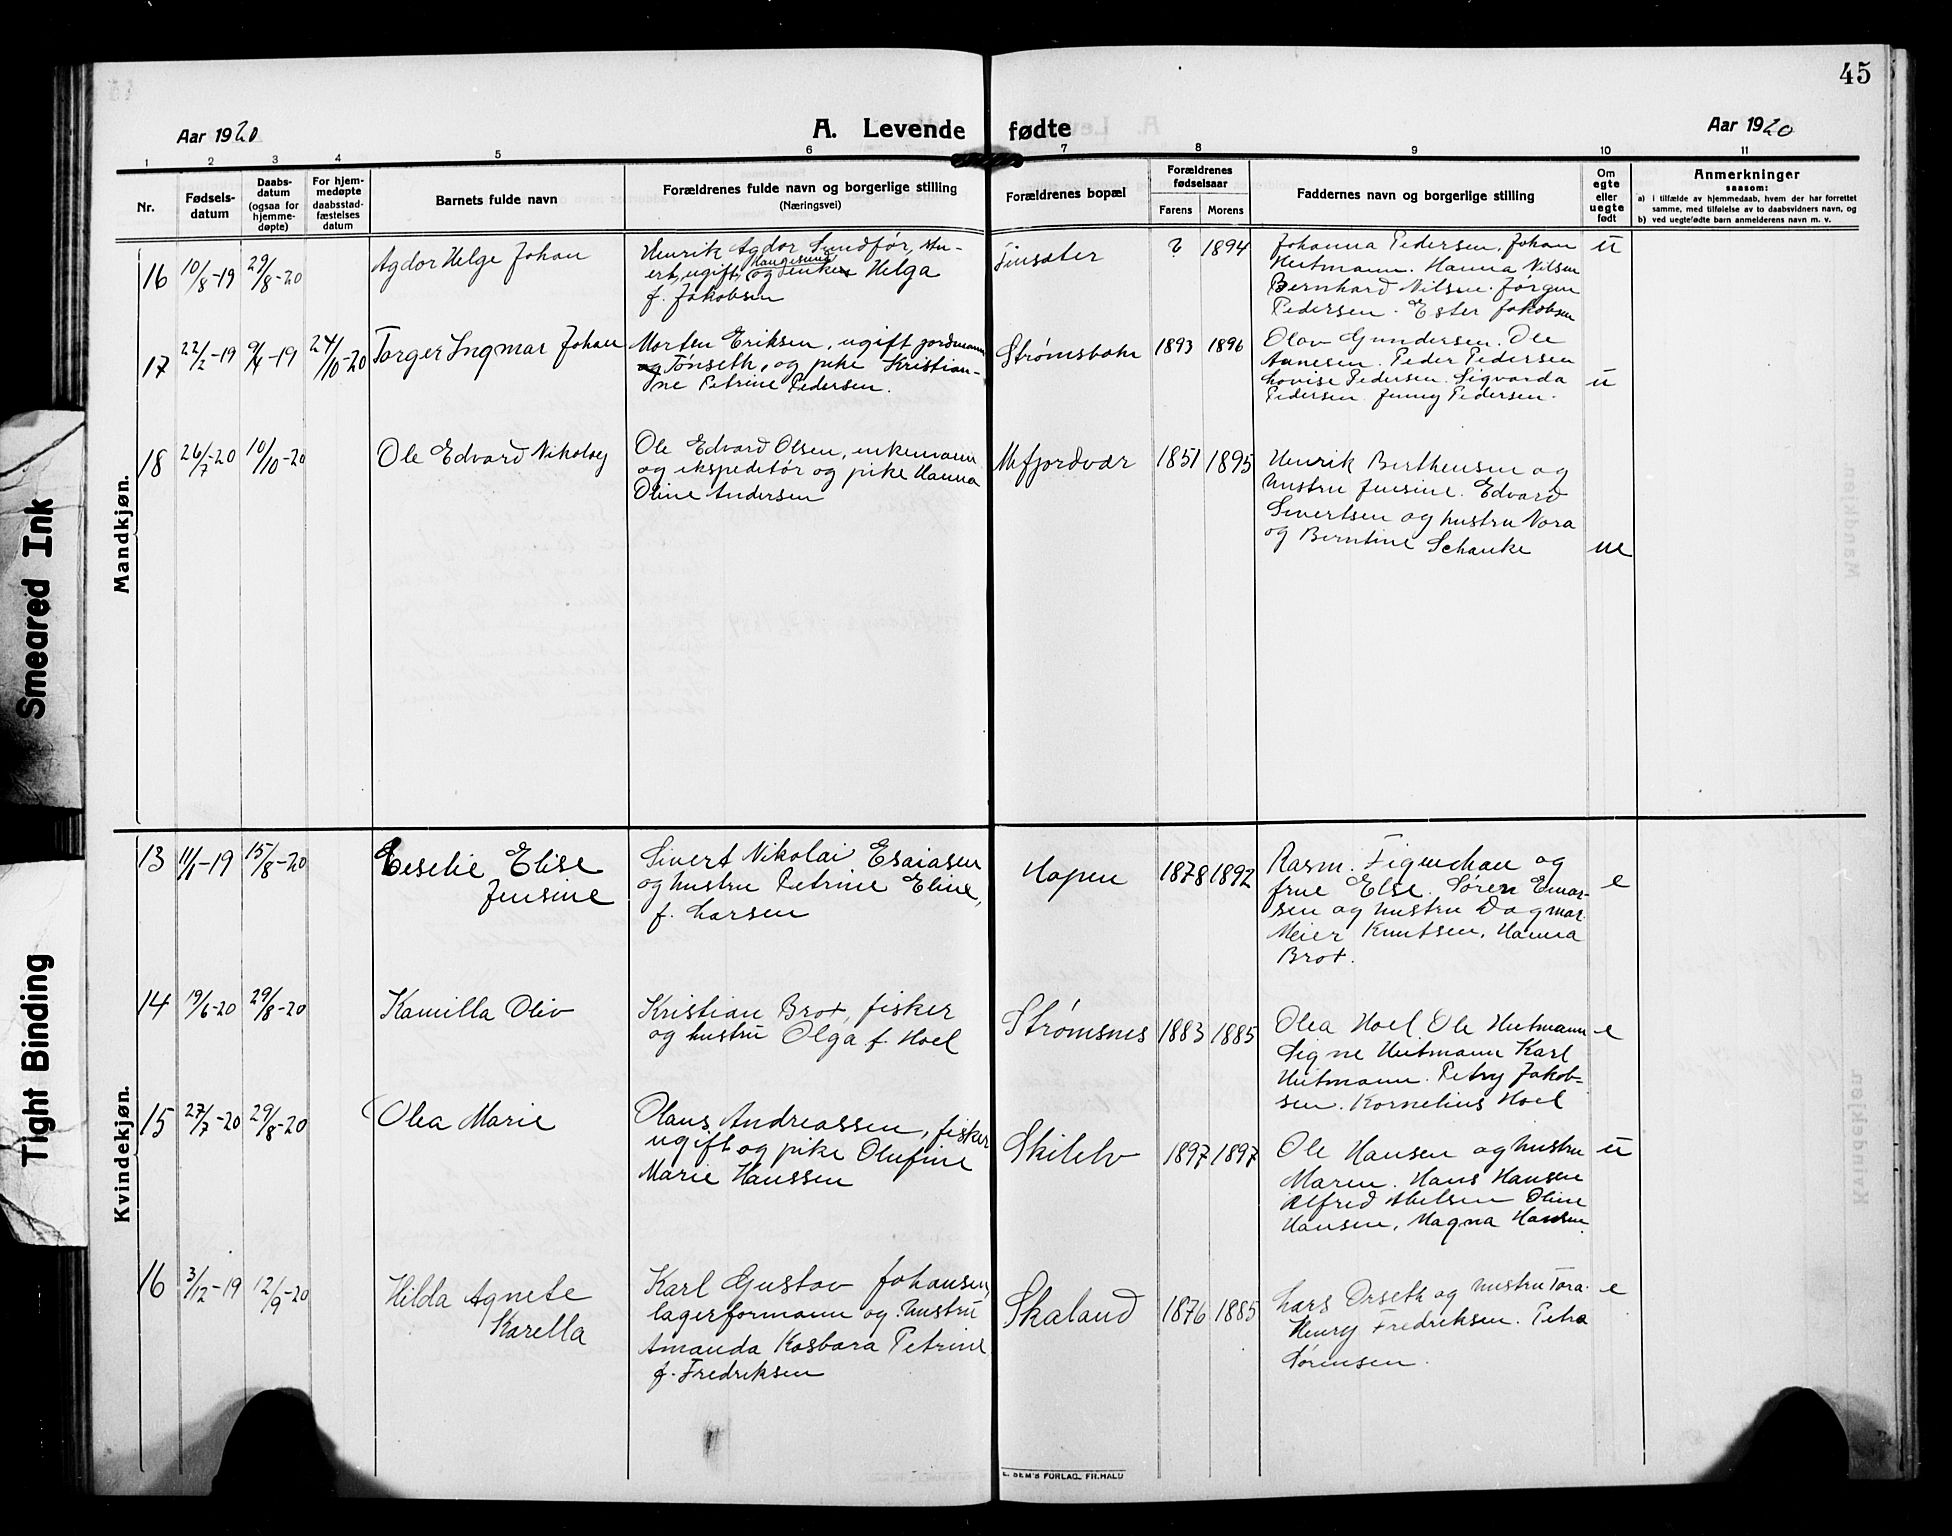 45
Aar 1920
A. Levende fødte
Aar 1920
1 2 3 4 5 6 7 8 9 10 11
Nr.
Fødsels-
datum
Daabs-
datum
(ogsaa for
hjemme-
døpte)
For hjem-
medøpte
daabsstad-
fæstelses
datum
Barnets fulde navn
Forældrenes fulde navn og borgerlige stilling
(Næringsvei)
Forældrenes bopæl
Forældrenes
fødselsaar
Farens Morens
Faddernes navn og borgerlige stilling
Om
egte
eller
uegte
født
Anmerkninger
saasom:
a) i tilfælde av hjemmedaab, hvem der har forrettet
samme, med tilføielse av to daabsvidners navn, og
b) ved uegtefødte barn anmelderens navn m. v.
Mandkjøn.
16 10/8-19 29/8-20
Agdor Helge Johan
Henrik Agdor Sundfør, stu-
ert, ugift, Haugesund og enke Helga
f. Jakobsen
Finsæter
? 1894
Johanna Pedersen. Johan
Heitmann. Hanna Nilsen
Bernhard Nilsen. Jørgen
Pedersen. Ester Jakobsen
u
17 22/2-19 9/4-19 24/10-20
Torger Ingmar Johan
Morten Eriksen, ugift jordmann
og Tønseth, og pike Kristian-
ne Petrine Pedersen.
Strømsbotn
1893 1896
Olav Gundersen. Ole
Aanesen. Peder Pedersen
Lovise Pedersen. Sigvarda
Pedersen. Jenny Pedersen.
u
18 26/7-20 10/10-20
Ole Edvard Nikolay
Ole Edvard Olsen, enkemann
og ekspeditør og pike Hanna
Oline Andersen
Mefjordvær
1851 1895
Henrik Berthensen og
hustru Jensine. Edvard
Sivertsen og hustru Nora
og Berntine Schanke
ue
Kvindekjøn.
13 11/1-19 15/8-20
Eliese
Jensine
Sivert Nikolai Esaiasen
og hustru Petrine Eline,
f. Larsen
Hopen
1878 1892
Rasm. Figenschau og
frue Else. Søren Einar-
sen og hustru Dagmar.
Meier Knutsen. Hanna
Brox.
e
14 19/6-20 29/8-20
Kamilla Oliv
Kristian Brox, fisker
og hustru Olga f. Hoel
Strømsnes
1883 1885
Olea Hoel Ole Heitmann
Signe Heitmann Karl
Heitmann. Petry Jakob-
sen. Kornelius Hoel
e
15 27/7-20 29/8-20
Olea Marie
Olaus Andreassen, fisker
ugift og pike Olufine
Marie Hanssen
Skilelv
1897 1897
Ole Hansen og hustru
Maren. Hans Hansen
Alfred Abelsen Oline
Hansen, Magna Hansen.
u
16 3/12-19 12/9-20
Hilda Agnete
Karella
Karl Gustav Johansen,
lagerformann og hustru
Amanda Kasbara Petrine
f. Fredriksen
Skaland
1876 1885
Lars Orseth og hustru Tora.
Henry Fredriksen. Petra
Sørensen.
e
E. SEM'S FORLAG, FR.HALD
Smeared Ink
Tight Binding